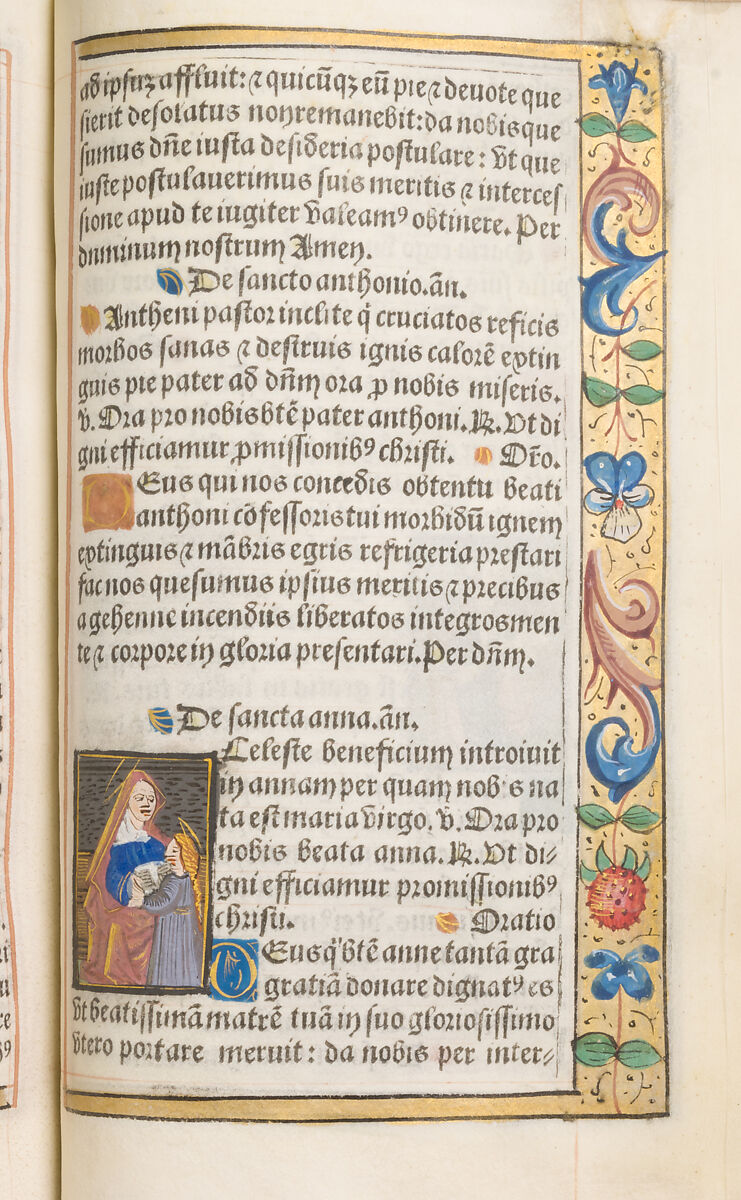 ad ipsuꝫ affluit: ⁊ quicūqꝫ eū pie ⁊ deuote que
sierit desolatus non remanebit: da nobis que
sumus dn̄e iusta desideria postulare: vt que
iuste postulauerimus suis meritis ⁊ interces
sione apud te iugiter valeamꝰ obtinere. Per
dnminum nostrum Amen.
De sancto anthonio. ān.
Antheni pastor inclite q̇ cruciatos reficis
morbos sanas ⁊ destruis ignis calorē extin
guis pie pater ad dn̄m ora ꝓ nobis miseris.
v. Ora pro nobis btē pater anthoni. ℟. Vt di
gni efficiamur ꝓmissionibꝰ christi. Or̄o.
DEus qui nos concedis obtentu beati
anthoni cōfessoris tui morbidū ignem
extinguis ⁊ mābris egris refrigeria prestari
fac nos quesumus ipsius meritis ⁊ precibus
a gehenne incendiis liberatos integros men
te ⁊ corpore in gloria presentari. Per dn̄m.
De sancta anna. ān.
Celeste beneficium introiuit
in annam per quam nobis na
ta est maria virgo. v. Ora pro
nobis beata anna. ℟. Vt di⸗
gni efficiamur promissionibꝰ
christi. Oratio
DEus q̇ btē anne tantā gra
gratiā donare dignatꝰ es
vt beatissimā matrē tuā in suo gloriosissimo
vtero portare meruit: da nobis per inter⸗